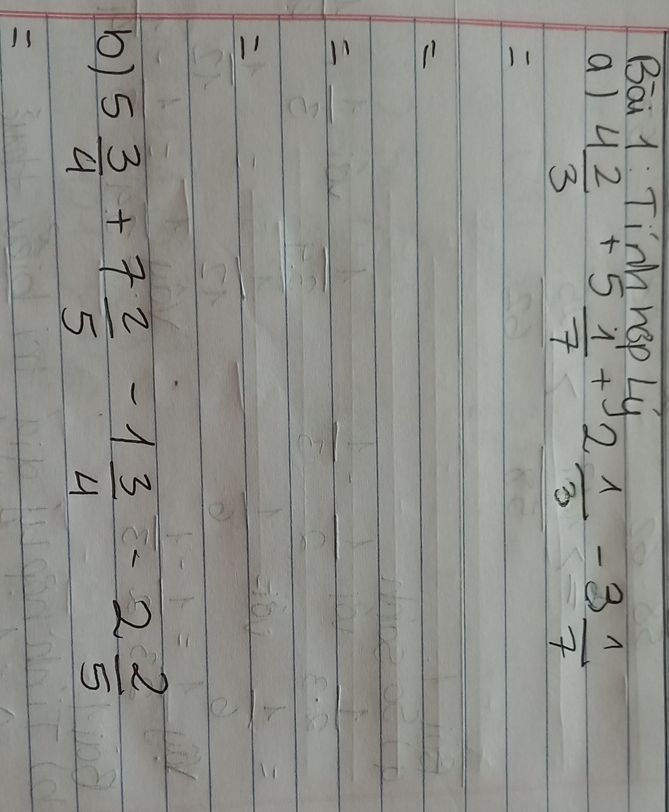 Bài 1: Tính hợp lý
a) 4 2/3 + 5 1/7 + 2 1/3 - 3 1/7
=
=
=
=
b) 5 3/4 + 7 2/5 - 1 3/4 - 2 2/5
=